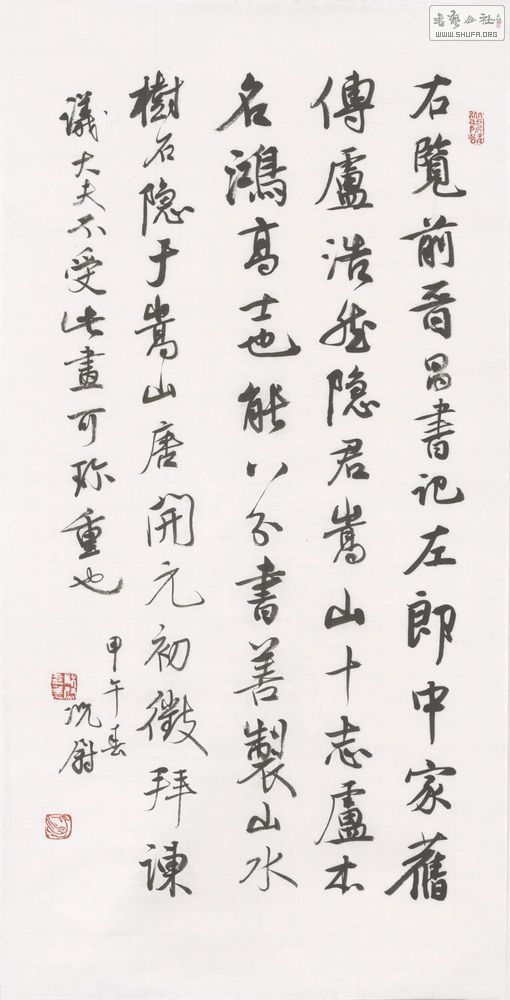 右覽前晋昌書记左郎中家舊
傳盧浩然隐君嵩山十志盧本
名鴻高士也能八分書善製山水
樹石隐于嵩山唐開元初徵拜諫
議大夫不受此畫可珎重也
甲午春
WWW.SHUFA.ORG